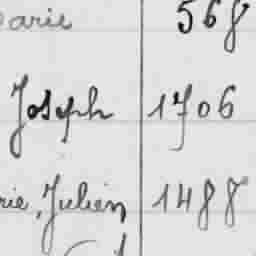 arie 568
Joseph 1706
rie, Julien 1488